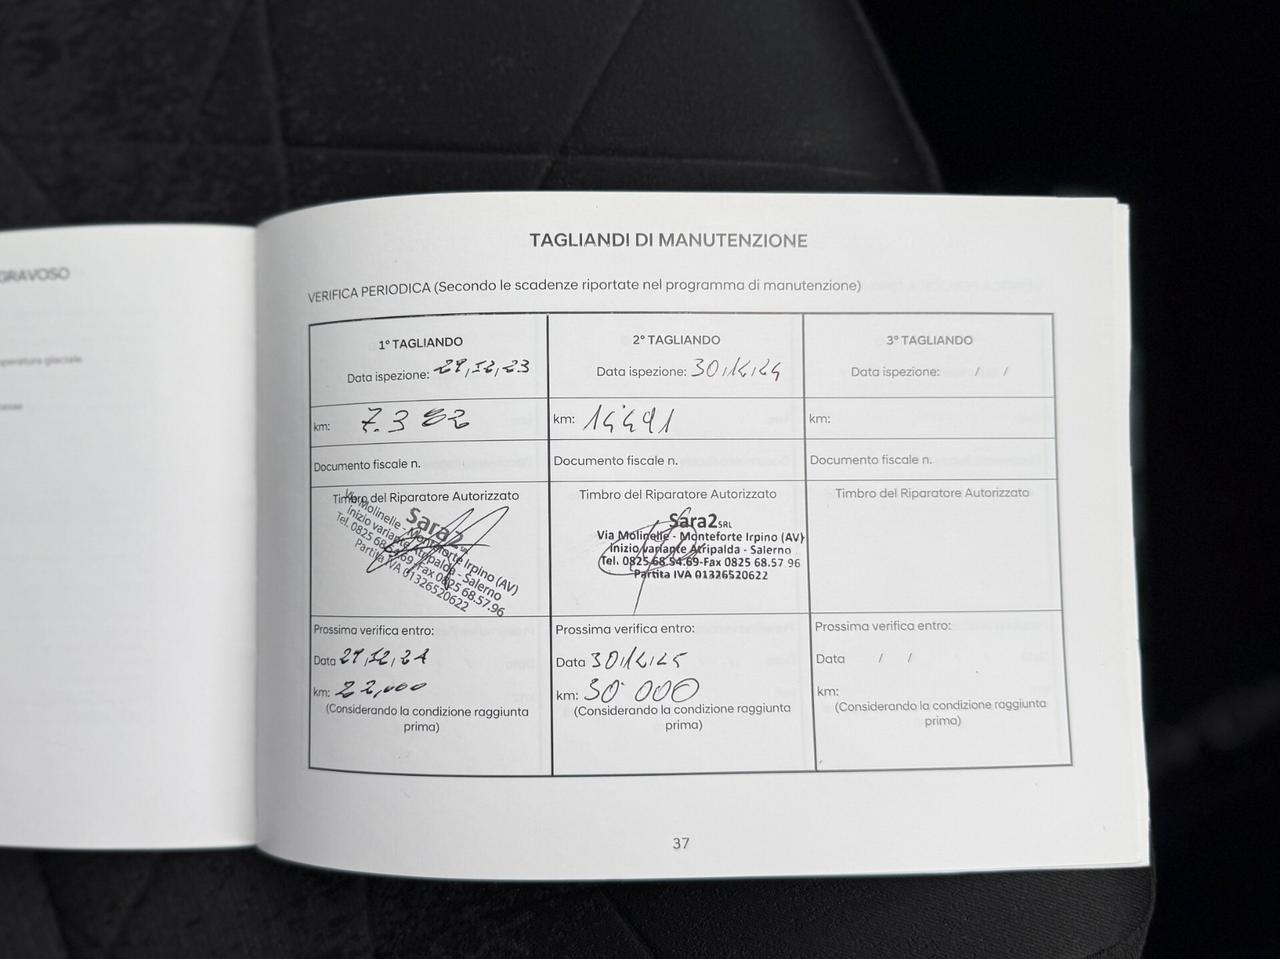 GRAVOSO
TAGLIANDI DI MANUTENZIONE
VERIFICA PERIODICA (Secondo le scadenze riportate nel programma di manutenzione)
1° TAGLIANDO
Data ispezione: 27,12,23
km: 7.382
Documento fiscale n.
Timbro del Riparatore Autorizzato
Sara2
Via Molinelle - Monteforte Irpino (AV)
Inizio variante Atripalda - Salerno
Tel. 0825 68.54.69-Fax 0825 68.57.96
Partita IVA 01326520622
Prossima verifica entro:
Data 27,12,24
km: 22,000
(Considerando la condizione raggiunta
prima)
2° TAGLIANDO
Data ispezione: 30/12/24
km: 14491
Documento fiscale n.
Timbro del Riparatore Autorizzato
Sara2 SRL
Via Molinelle - Monteforte Irpino (AV)
Inizio variante Atripalda - Salerno
Tel. 0825 68.54.69-Fax 0825 68.57.96
Partita IVA 01326520622
Prossima verifica entro:
Data 30/12/25
km: 30000
(Considerando la condizione raggiunta
prima)
3° TAGLIANDO
Data ispezione: / /
km:
Documento fiscale n.
Timbro del Riparatore Autorizzato
Prossima verifica entro:
Data / /
km:
(Considerando la condizione raggiunta
prima)
37